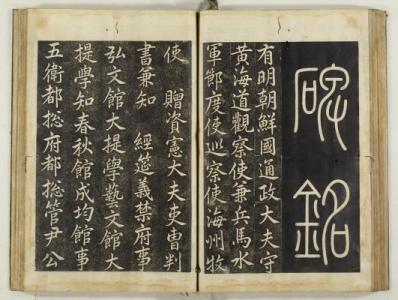 碑銘
有明朝鮮國通政大夫守
黃海道觀察使兼兵馬水
軍節度使巡察使海州牧
使 贈資憲大夫吏曹判
書兼知 經筵義禁府事
弘文館大提學藝文館大
提學知春秋館成均館事
五衛都摠府都摠管尹公